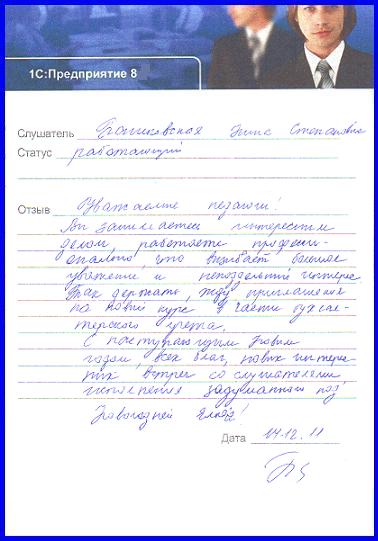 1С:Предприятие 8
Слушатель Степановна
Статус работающий
Отзыв Уважаемые педагоги!
Вы занимаетесь интересным
делом, работаете професси-
онально, что вызывает большое
уважение и неподдельный интерес
Так держать, жду приглашения
на новый курс в части бухгал-
терского учета.
С наступающим Новым
годом, всех благ, новых интерес-
ных встреч со слушателями
исполнения задуманного под
Новогодней Ёлкой!
Дата 14.12.11